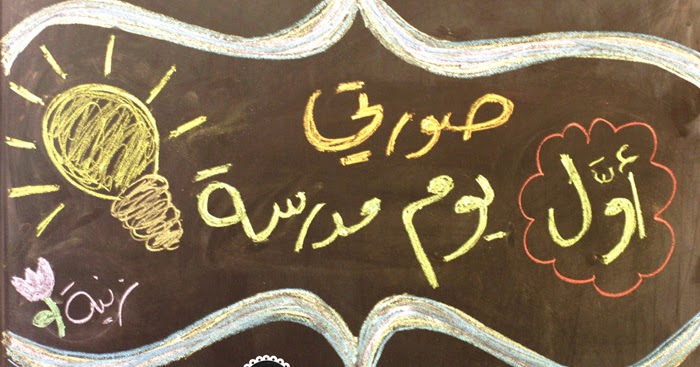 صورتي
أوَّل يوم مدرسة
زينة